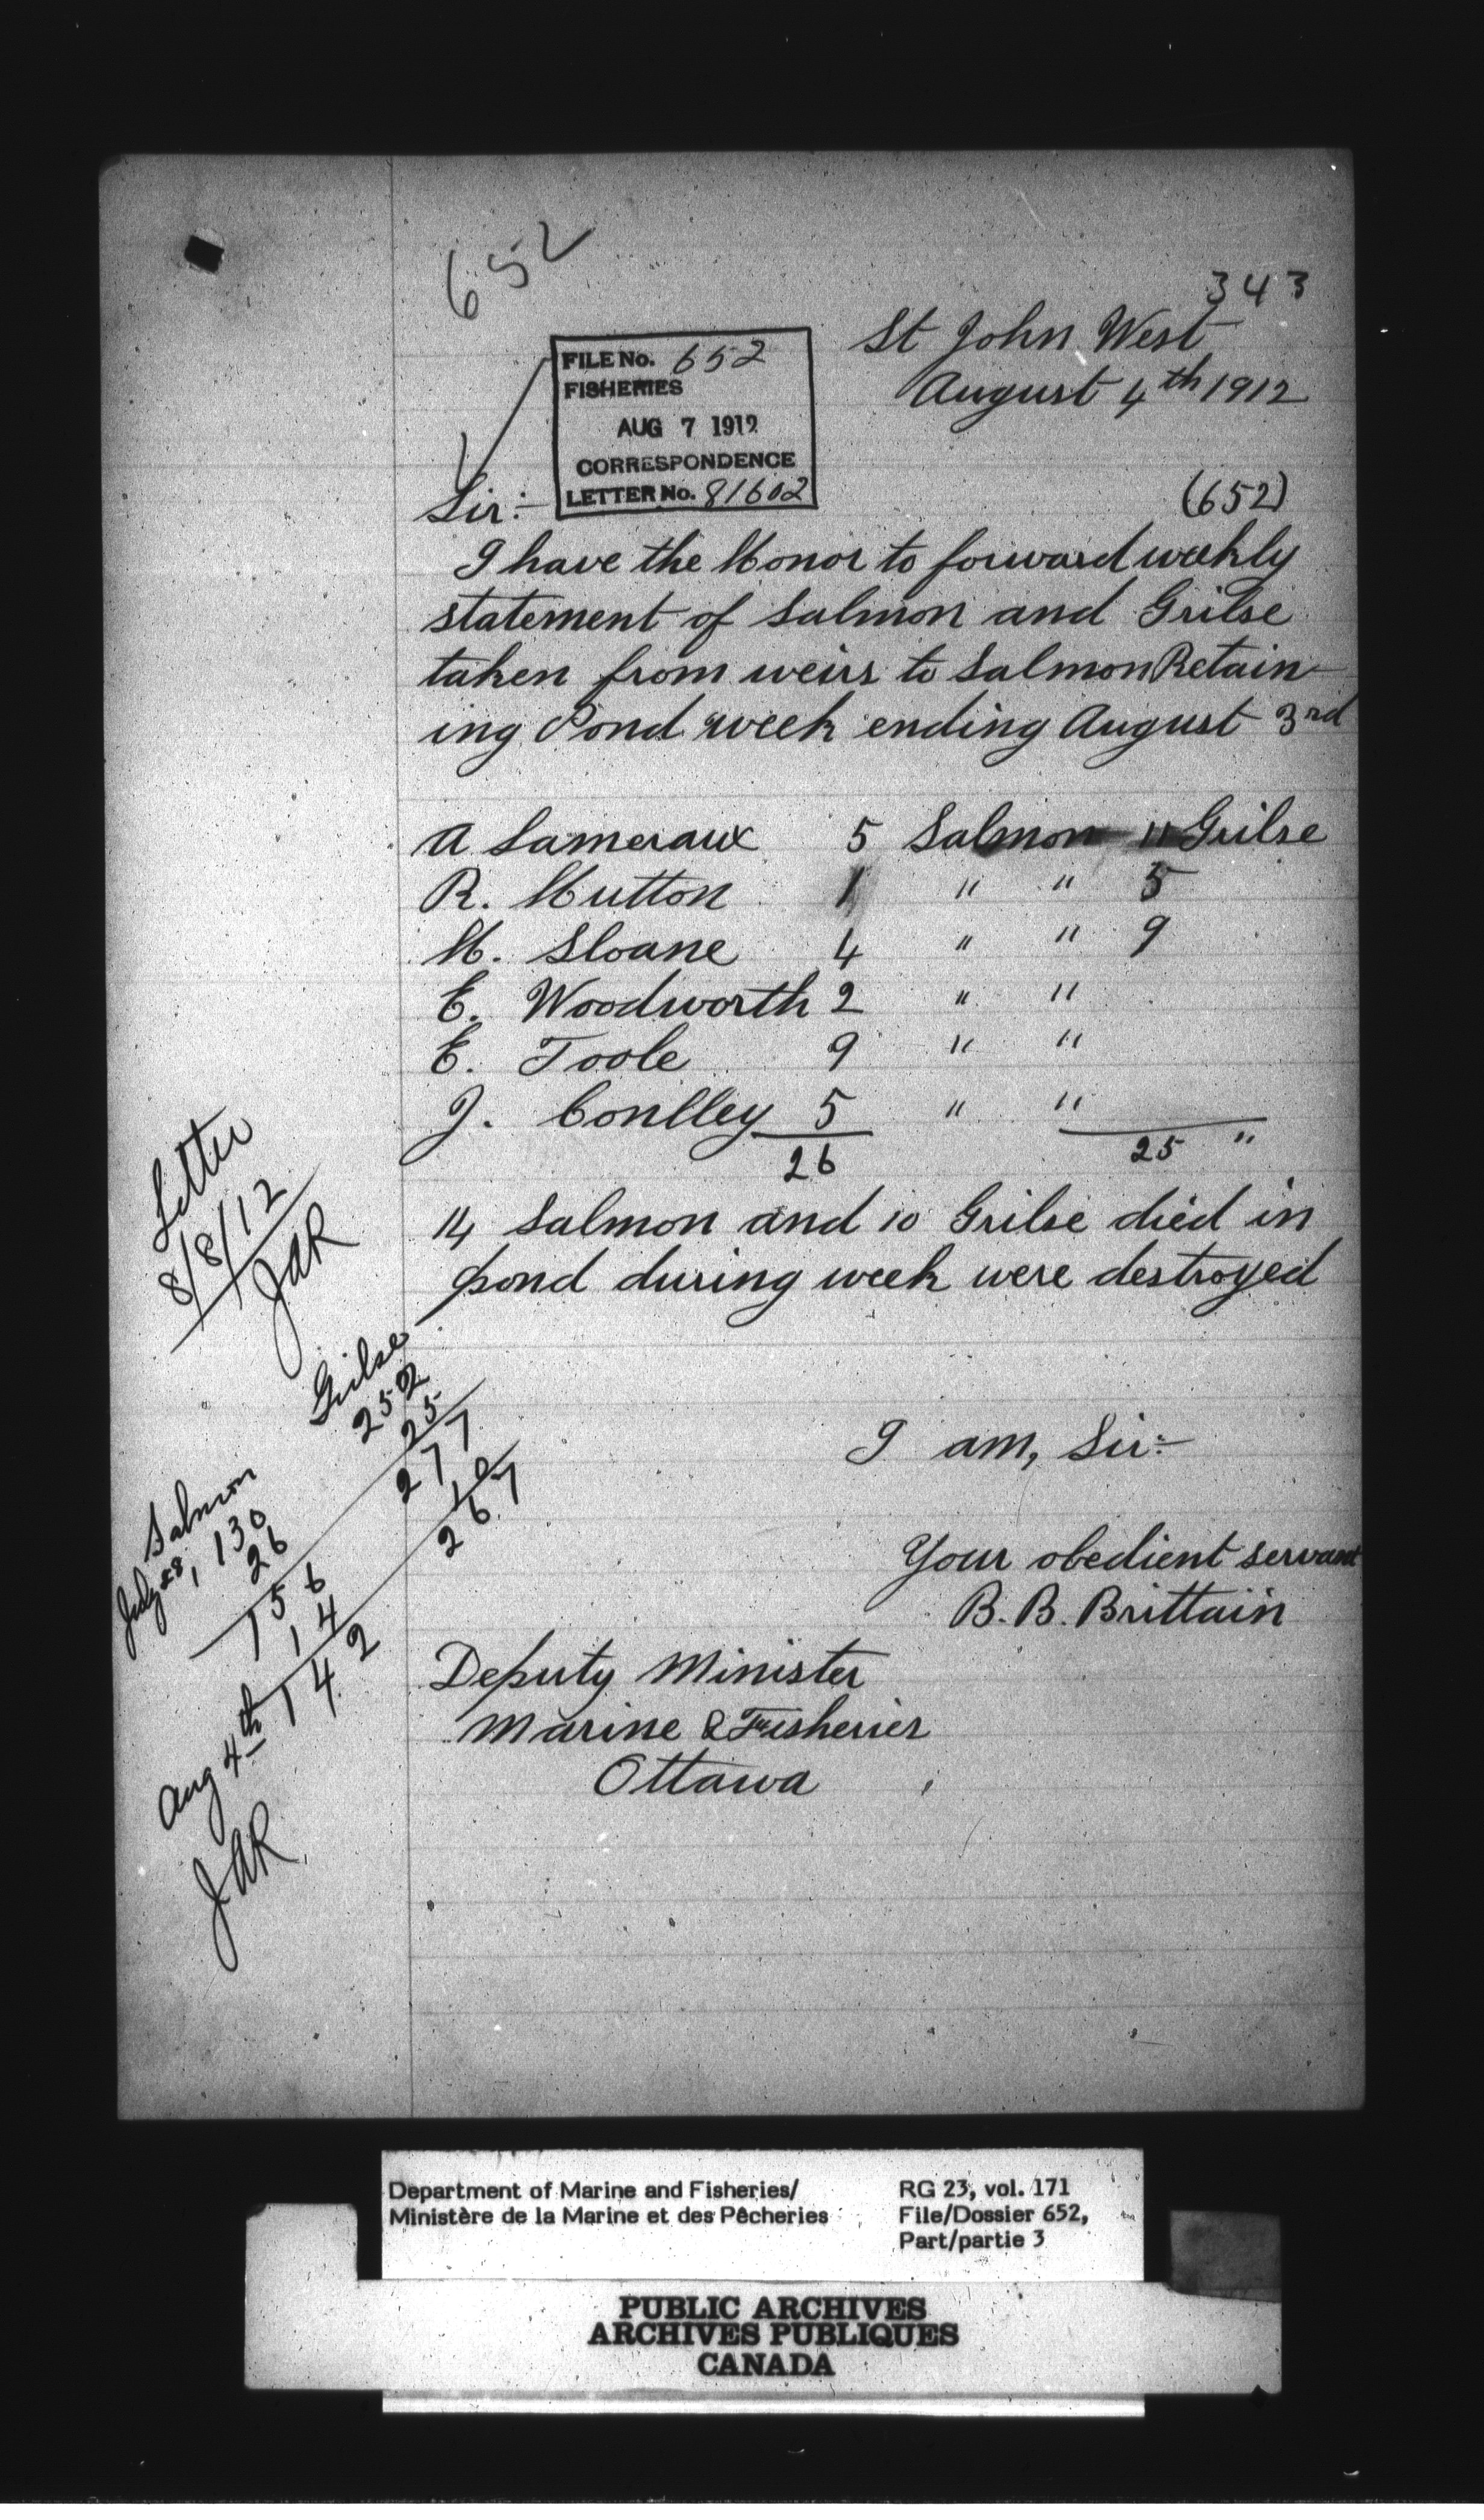 652
343
St John West
August 4th 1912
FILE No. 652
FISHERIES
AUG 7 1912
CORRESPONDENCE
LETTER No. 81602
Sir:-
(652)
I have the Honor to forward weekly
statement of Salmon and Grilse
taken from weirs to Salmon Retain-
ing Pond week ending August 3rd
A Lameraux 5 Salmon 11 Grilse
R. Hutton 1 " " 5
H. Sloane 4 " " 9
E. Woodworth 2 " "
E. Toole 9 " "
J. Conlley 5 " "
26 25 "
14 Salmon and 10 Grilse died in
pond during week were destroyed
I am, Sir:-
Your obedient servant
B. B. Brittain
Deputy Minister
Marine & Fisheries
Ottawa
Letter
8/8/12
JAR
Grilse
252
25
277
10
267
Salmon
July 28, 130
26
156
14
Aug 4th 142
JAR
Department of Marine and Fisheries/
Ministère de la Marine et des Pêcheries
RG 23, vol. 171
File/Dossier 652,
Part/partie 3
PUBLIC ARCHIVES
ARCHIVES PUBLIQUES
CANADA